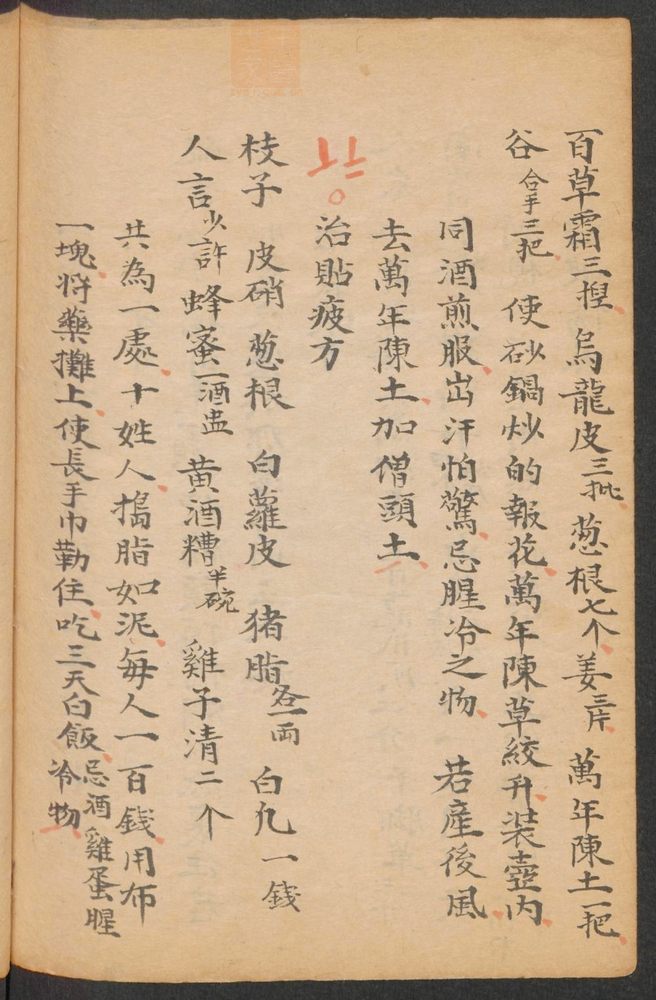 百草霜三揑烏龍皮三批葱根七个姜三片萬年陳土一把
谷合手三把使砂鍋炒的報花萬年陳草絞升装壺内
同酒煎服出汗怕驚忌腥冷之物若產後風
去萬年陳土加僧頭土
治貼疲方
枝子皮硝葱根白蘿皮猪脂各一両白凢一錢
人言少許蜂蜜一酒盅黄酒糟半碗雞子清二个
共為一處十姓人搗脂如泥每人一百錢用布
一塊将藥攤上使長手巾勒住吃三天白飯忌酒雞蛋腥冷物